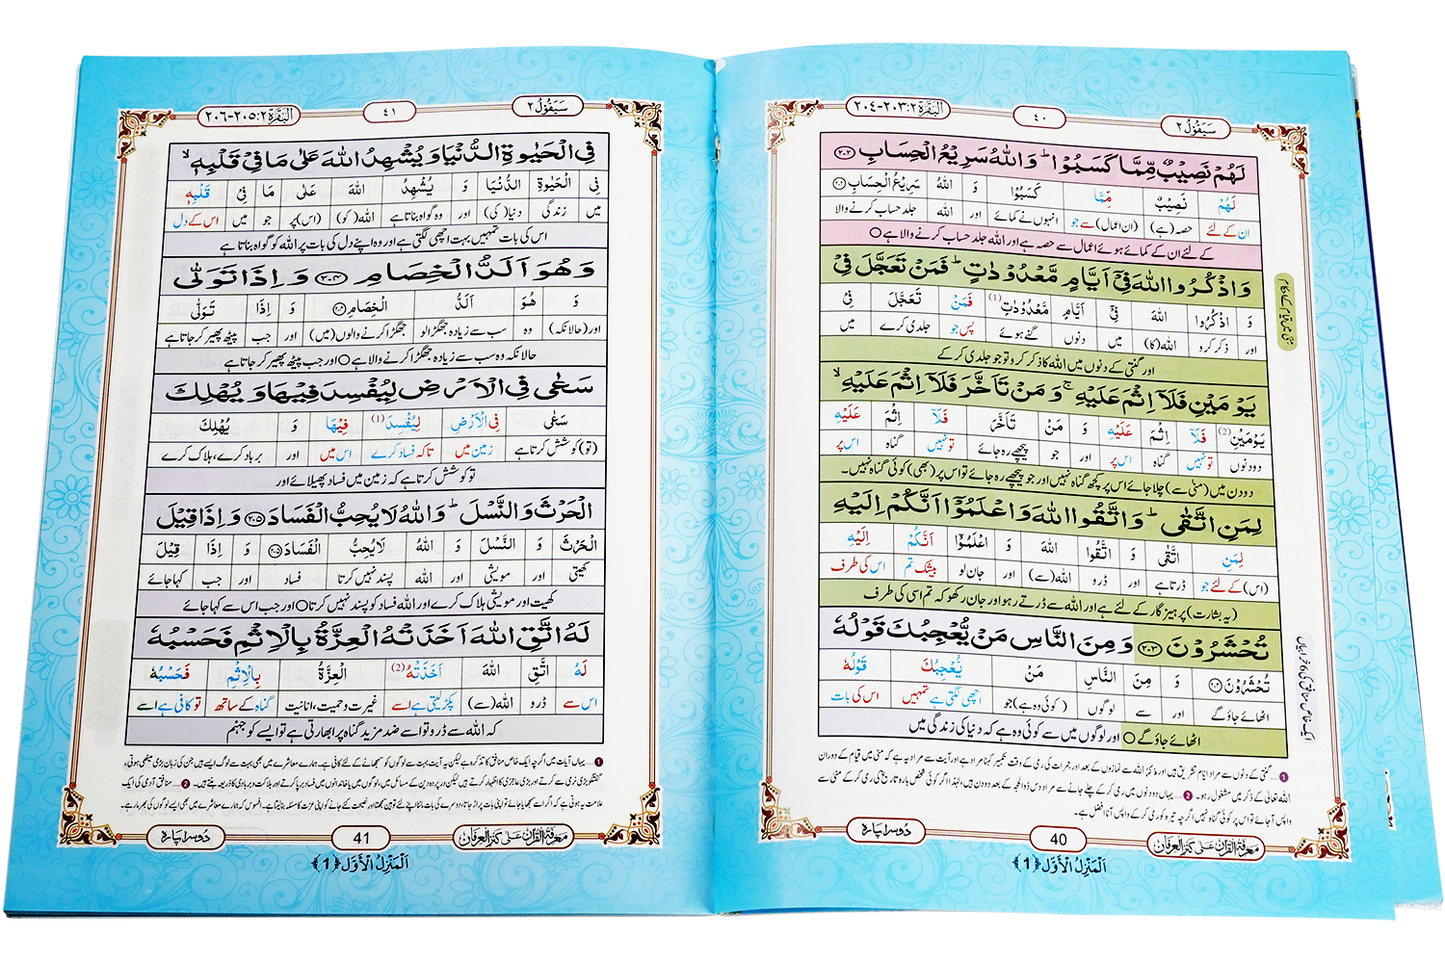 سَيَقُوْلُ ٢
٤٠
الْبَقَرَة ٢:٢٠٣-٢٠٤
لَهُمْ نَصِيْبٌ مِّمَّا كَسَبُوْا ؕ وَاللّٰهُ سَرِيْعُ الْحِسَابِ ﴿٢٠٢﴾
لَهُمْ نَصِيْبٌ مِّمَّا كَسَبُوْا وَ اللّٰهُ سَرِيْعُ الْحِسَابِ ﴿٢٠٢﴾
ان کے لئے حصہ (ہے) (ان اعمال) سے جو انہوں نے کمائے اور اللہ جلد حساب کرنے والا
کے لئے ان کے کمائے ہوئے اعمال سے حصہ ہے اور اللہ جلد حساب کرنے والا ہے ○
وَاذْكُرُوا اللّٰهَ فِيْٓ اَيَّامٍ مَّعْدُوْدٰتٍ ؕ فَمَنْ تَعَجَّلَ فِيْ
وَ اذْكُرُوا اللّٰهَ فِيْٓ اَيَّامٍ مَّعْدُوْدٰتٍ (1) فَمَنْ تَعَجَّلَ فِيْ
اور ذکر کرو اللہ (کا) میں دنوں گنے ہوئے پس جو جلدی کرے میں
اور گنتی کے دنوں میں اللہ کا ذکر کرو تو جو جلدی کر کے
يَوْمَيْنِ فَلَآ اِثْمَ عَلَيْهِ ۚ وَمَنْ تَاَخَّرَ فَلَآ اِثْمَ عَلَيْهِ ۙ
يَوْمَيْنِ (2) فَلَآ اِثْمَ عَلَيْهِ وَ مَنْ تَاَخَّرَ فَلَآ اِثْمَ عَلَيْهِ
دو دنوں تو نہیں گناہ اس پر اور جو پیچھے رہ جائے تو نہیں گناہ اس پر
دو دن میں (منٰی سے) چلا جائے اس پر کچھ گناہ نہیں اور جو پیچھے رہ جائے تو اس پر (بھی) کوئی گناہ نہیں۔
لِمَنِ اتَّقٰى ؕ وَاتَّقُوا اللّٰهَ وَاعْلَمُوْٓا اَنَّكُمْ اِلَيْهِ
لِمَنِ اتَّقٰى وَ اتَّقُوا اللّٰهَ وَ اعْلَمُوْٓا اَنَّكُمْ اِلَيْهِ
(اس) کے لئے جو ڈرتا ہے اور ڈرو اللہ (سے) اور جان لو بیشک تم اس کی طرف
(یہ بشارت) پرہیز گار کے لئے ہے اور اللہ سے ڈرتے رہو اور جان رکھو کہ تم اسی کی طرف
تُحْشَرُوْنَ ﴿٢٠٣﴾ وَمِنَ النَّاسِ مَنْ يُّعْجِبُكَ قَوْلُهٗ
تُحْشَرُوْنَ ﴿٢٠٣﴾ وَ مِنَ النَّاسِ مَنْ يُّعْجِبُكَ قَوْلُهٗ
اٹھائے جاؤ گے اور سے لوگوں (کوئی وہ ہے) جو اچھی لگتی ہے تمہیں اس کی بات
اٹھائے جاؤ گے ○ اور لوگوں میں سے کوئی وہ ہے کہ دنیا کی زندگی میں
مَعْرِفَةُ الْقُرْآن عَلٰى كَنْزِ الْعِرْفَان
40
دُوسرا پارہ
اَلْمَنْزِلُ الْاَوَّل ﴿1﴾
سَيَقُوْلُ ٢
٤١
الْبَقَرَة ٢:٢٠٥-٢٠٦
فِي الْحَيٰوةِ الدُّنْيَا وَيُشْهِدُ اللّٰهَ عَلٰى مَا فِيْ قَلْبِهٖ ۙ
فِي الْحَيٰوةِ الدُّنْيَا وَ يُشْهِدُ اللّٰهَ عَلٰى مَا فِيْ قَلْبِهٖ
میں زندگی دنیا (کی) اور وہ گواہ بناتا ہے اللہ (کو) (اس) پر جو میں اس کے دل
اس کی بات تمہیں بہت اچھی لگتی ہے اور وہ اپنے دل کی بات پر اللہ کو گواہ بناتا ہے
وَهُوَ اَلَدُّ الْخِصَامِ ﴿٢٠٤﴾ وَاِذَا تَوَلّٰى
وَ هُوَ اَلَدُّ الْخِصَامِ ﴿٢٠٤﴾ وَ اِذَا تَوَلّٰى
اور (حالانکہ) وہ سب سے زیادہ جھگڑالو جھگڑا کرنے والوں (میں) اور جب پیٹھ پھیر کر جاتا ہے
حالانکہ وہ سب سے زیادہ جھگڑا کرنے والا ہے ○ اور جب پیٹھ پھیر کر جاتا ہے
سَعٰى فِي الْاَرْضِ لِيُفْسِدَ فِيْهَا وَيُهْلِكَ
سَعٰى فِي الْاَرْضِ لِيُفْسِدَ (1) فِيْهَا وَ يُهْلِكَ
(تو) کوشش کرتا ہے زمین میں تاکہ فساد کرے اس میں اور برباد کرے، ہلاک کرے
تو کوشش کرتا ہے کہ زمین میں فساد پھیلائے اور
الْحَرْثَ وَالنَّسْلَ ؕ وَاللّٰهُ لَا يُحِبُّ الْفَسَادَ ﴿٢٠٥﴾ وَاِذَا قِيْلَ
الْحَرْثَ وَ النَّسْلَ وَ اللّٰهُ لَا يُحِبُّ الْفَسَادَ ﴿٢٠٥﴾ وَ اِذَا قِيْلَ
کھیتی اور مویشی اور اللہ پسند نہیں کرتا فساد اور جب کہا جائے
کھیت اور مویشی ہلاک کرے اور اللہ فساد کو پسند نہیں کرتا ○ اور جب اس سے کہا جائے
لَهُ اتَّقِ اللّٰهَ اَخَذَتْهُ الْعِزَّةُ بِالْاِثْمِ فَحَسْبُهٗ
لَهُ اتَّقِ اللّٰهَ اَخَذَتْهُ (2) الْعِزَّةُ بِالْاِثْمِ فَحَسْبُهٗ
اس سے ڈرو اللہ (سے) پکڑ لیتی ہے اسے غیرت و حمیت، انانیت گناہ کے ساتھ تو کافی ہے اسے
کہ اللہ سے ڈرو تو اسے ضد مزید گناہ پر ابھارتی ہے تو ایسے کو جہنم
مَعْرِفَةُ الْقُرْآن عَلٰى كَنْزِ الْعِرْفَان
41
دُوسرا پارہ
اَلْمَنْزِلُ الْاَوَّل ﴿1﴾